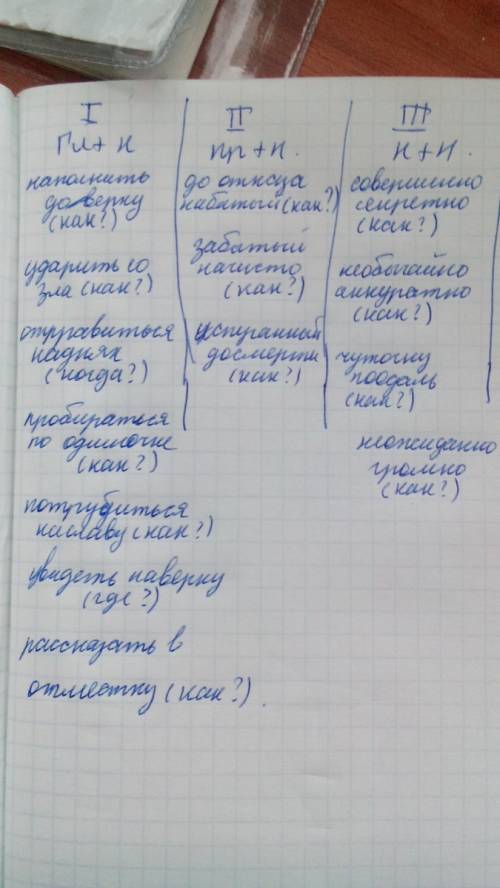 I
Гл + Н
наполнить
доверху
(как?)
ударить со
зла (как?)
отправиться
наднях
(когда?)
пробираться
по одиночке
(как?)
потрудиться
наславу (как?)
увидеть наверху
(где?)
рассказать в
отместку (как?).
II
пр + Н.
до отказа
набитый (как?)
забытый
начисто
(как?)
испуганный
досмерти
(как?)
III
Н + Н.
совершенно
секретно
(как?)
необычайно
аккуратно
(как?)
чуточку
поодаль
(как?)
неожиданно
громко
(как?)